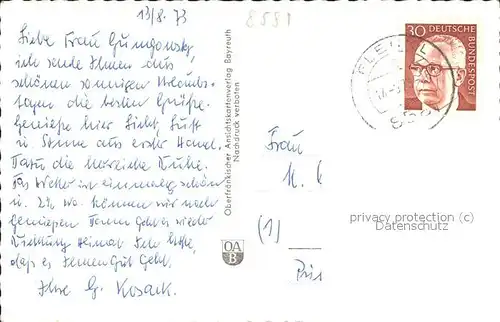 13/8. 73
8581
Liebe Frau
ich sende Ihnen aus
schönen sonnigen Urlaubs-
tagen die besten Grüße.
Genieße hier Licht, Luft
u. Sonne aus erster Hand.
Dazu die herrliche Ruhe.
Das Wetter ist einmalig schön
u. 2½ Wo. können wir noch
genießen. Dann geht es wieder
Richtung Heimat. Ich hoffe,
daß es Ihnen Gut Geht.
Ihre G. Kosack.
Oberfränkischer Ansichtskartenverlag Bayreuth
Nachdruck verboten
OA
B
30 DEUTSCHE
BUNDESPOST
Frau
M.
(1)
privacy protection (c)
Datenschutz